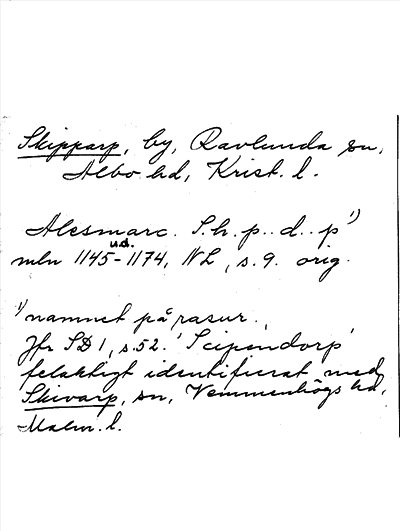 Skipparp, by, Ravlunda sn,
Albo hd, Krist. l.
Alesmarc. S.h.p..d..p¹⁾
u.d.
mln 1145-1174, NL, s.9. orig.
¹⁾ namnet på rasur.
Jfr SD 1, s.52. 'Scipendorp'
felaktigt identifierat med
Skivarp, sn, Vemmenhögs hd,
Malm. l.